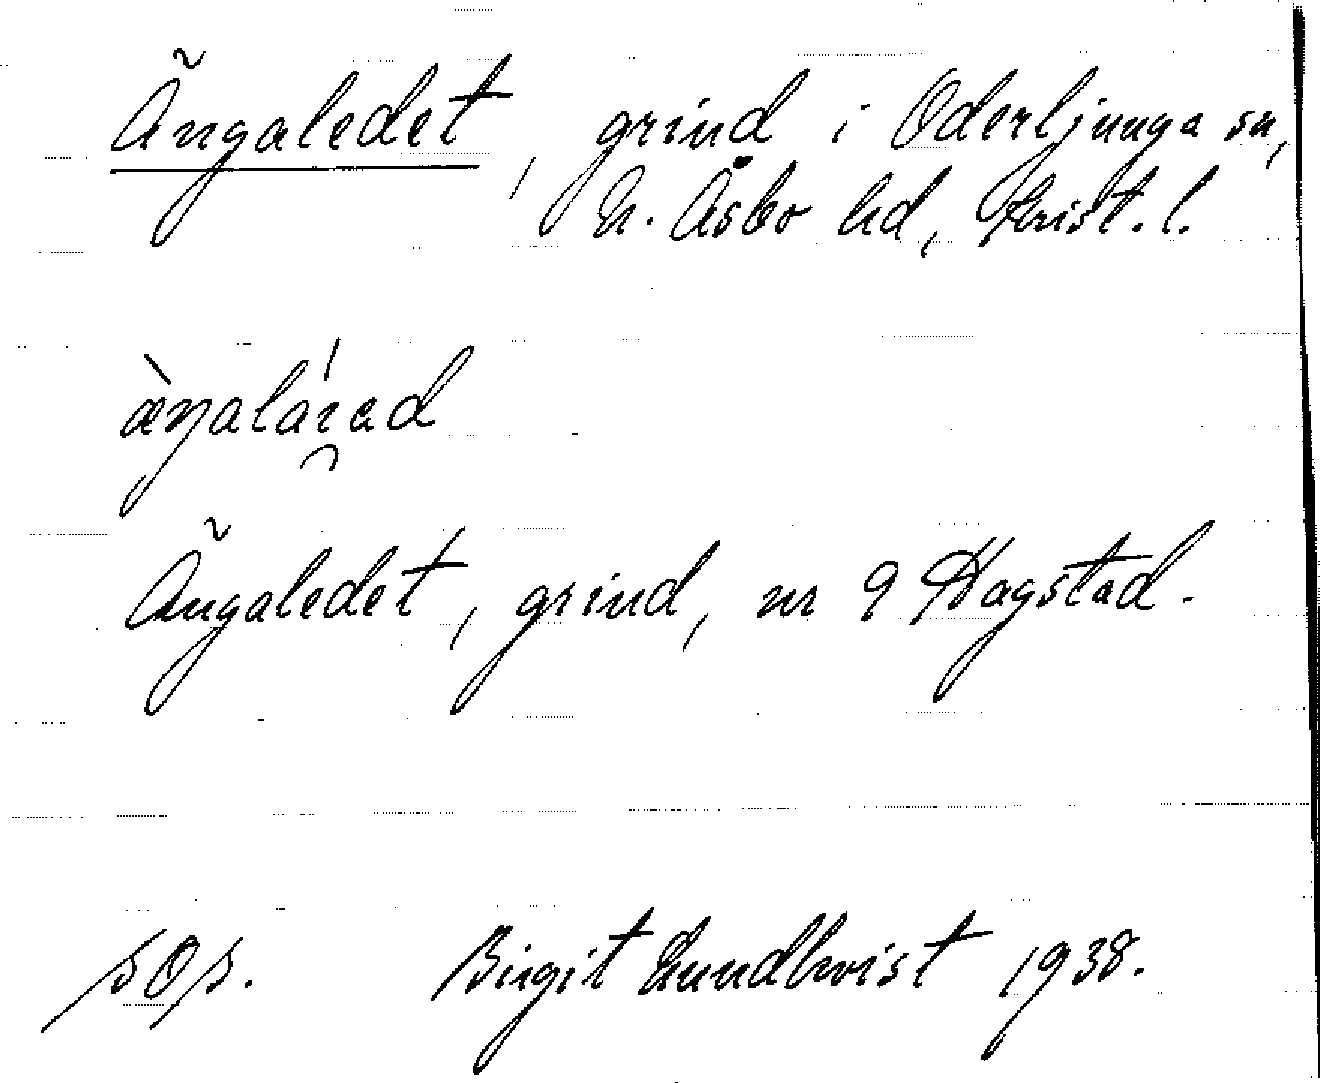 Ängaledet, grind i Oderljunga sn,
N. Åsbo hd, Krist. l.
Ängaledet, grind, nr 9 Hagstad.
sOs. Birgit Lundkvist 1938.